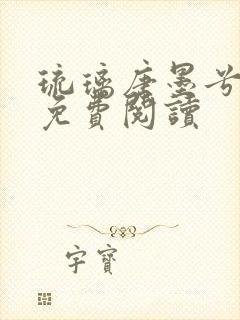 琉璃唐墨兮
免費閱讀
字寶